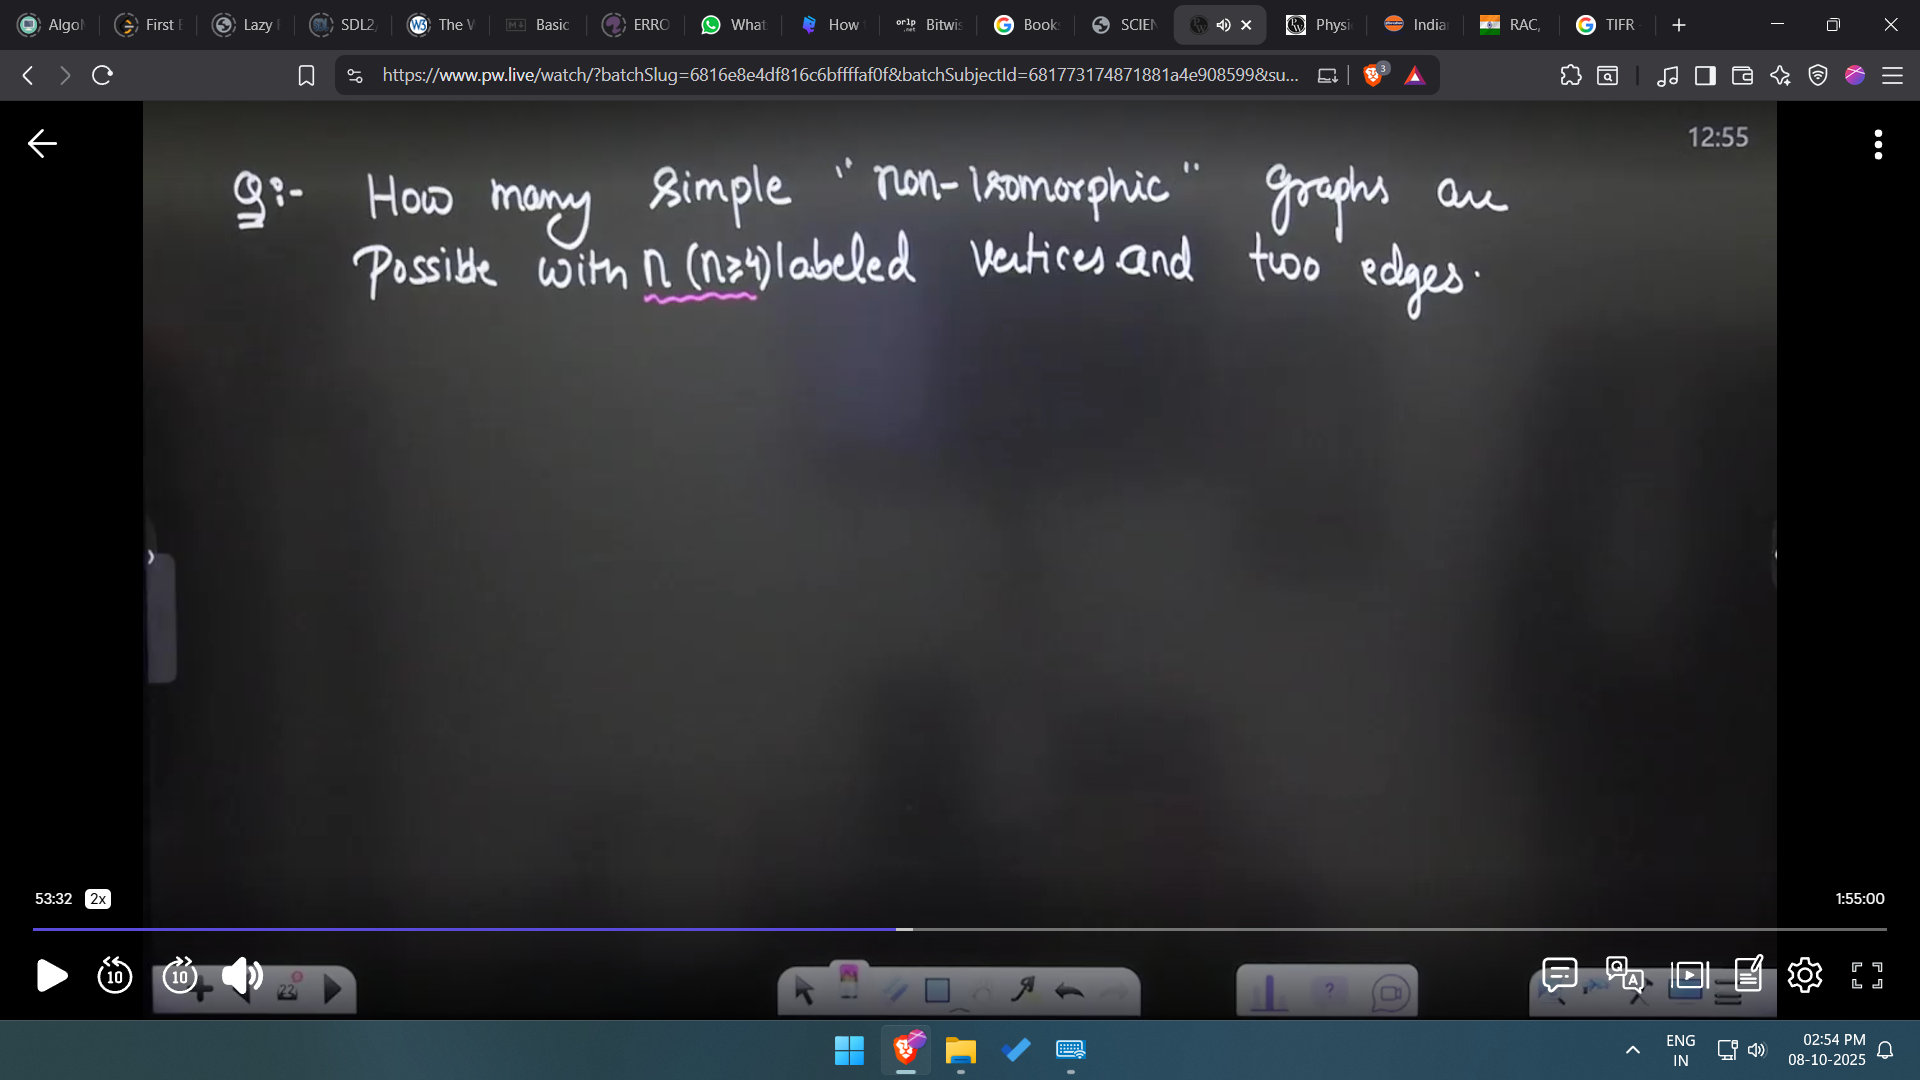 Algo First E Lazy SDL2, The W Basic ERRO What How Bitwis Book SCIEN Physi India RAC, TIFR
https://www.pw.live/watch/?batchSlug=6816e8e4df816c6bffffaf0f&batchSubjectId=681773174871881a4e908599&su... 3
12:55
Q:- How many simple "non-isomorphic" graphs are
Possible with n (n≥4) labeled vertices and two edges.
53:32 2x 1:55:00
10 10 22 8 ?
ENG 02:54 PM
IN 08-10-2025